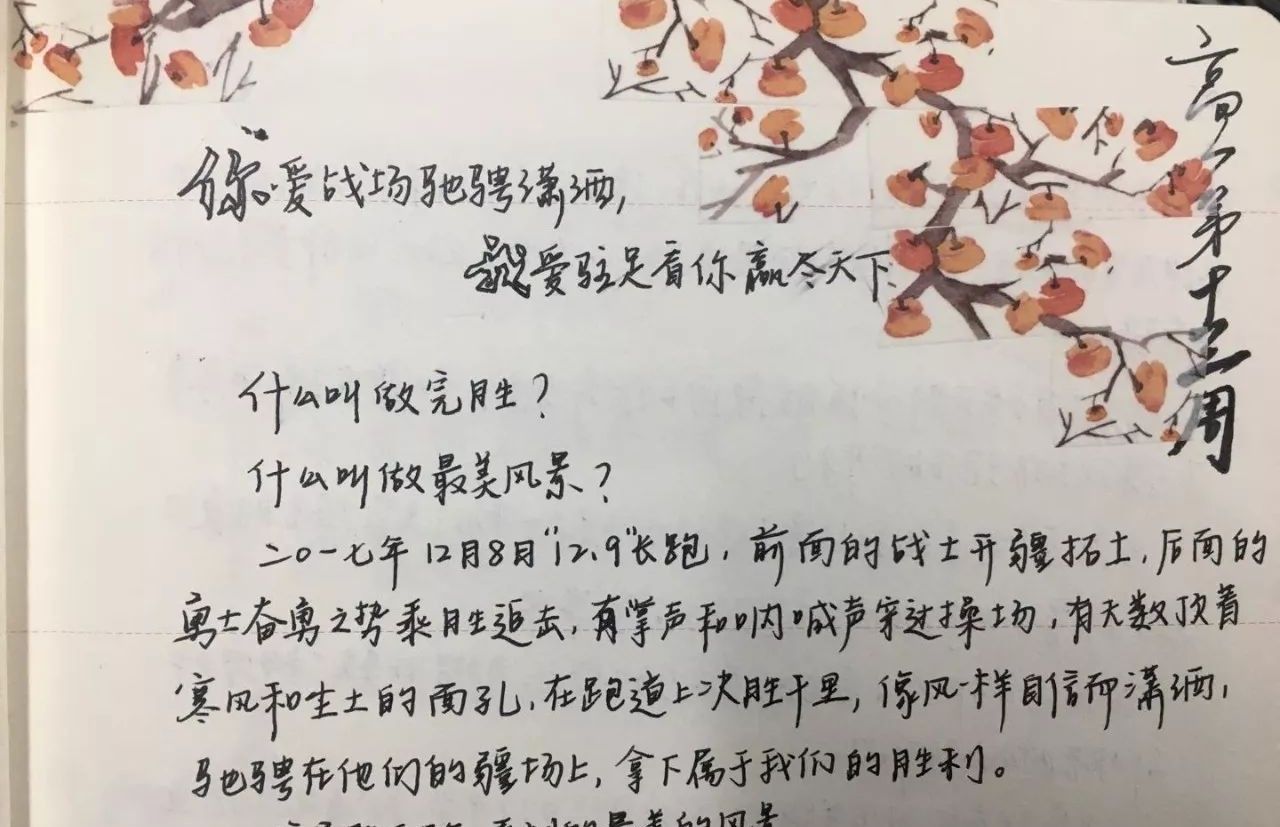 高一第十三周
你爱战场驰骋潇洒,
我爱驻足看你赢尽天下.
什么叫做完胜?
什么叫做最美风景?
二〇一七年12月8日"12.9"长跑,前面的战士开疆拓土,后面的
勇士奋勇之势乘胜追去,有掌声和呐喊声穿过操场,有无数顶着
寒风和尘土的面孔,在跑道上决胜千里,像风一样自信而潇洒,
驰骋在他们的疆场上,拿下属于我们的胜利。
最美的风景